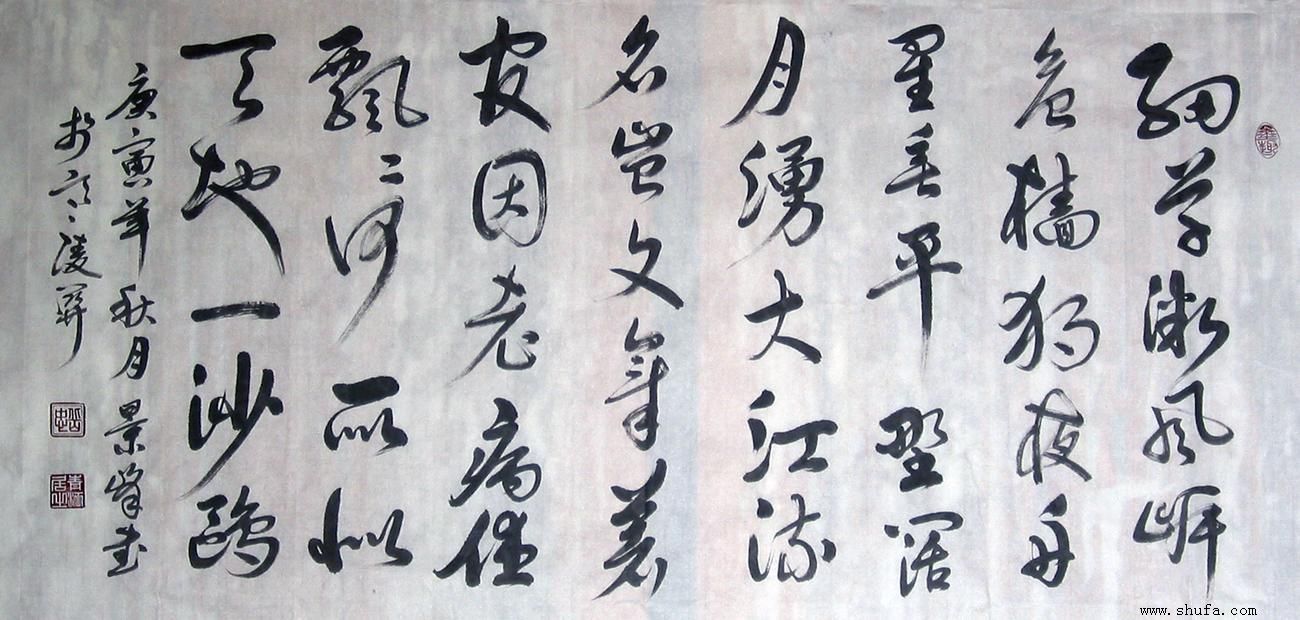 細草微风岸
危檣独夜舟
星垂平野闊
月湧大江流
名豈文章著
官因老病休
飄〻何所似
天地一沙鷗
庚寅年秋月景峰書
於陵軒
www.shufa.com